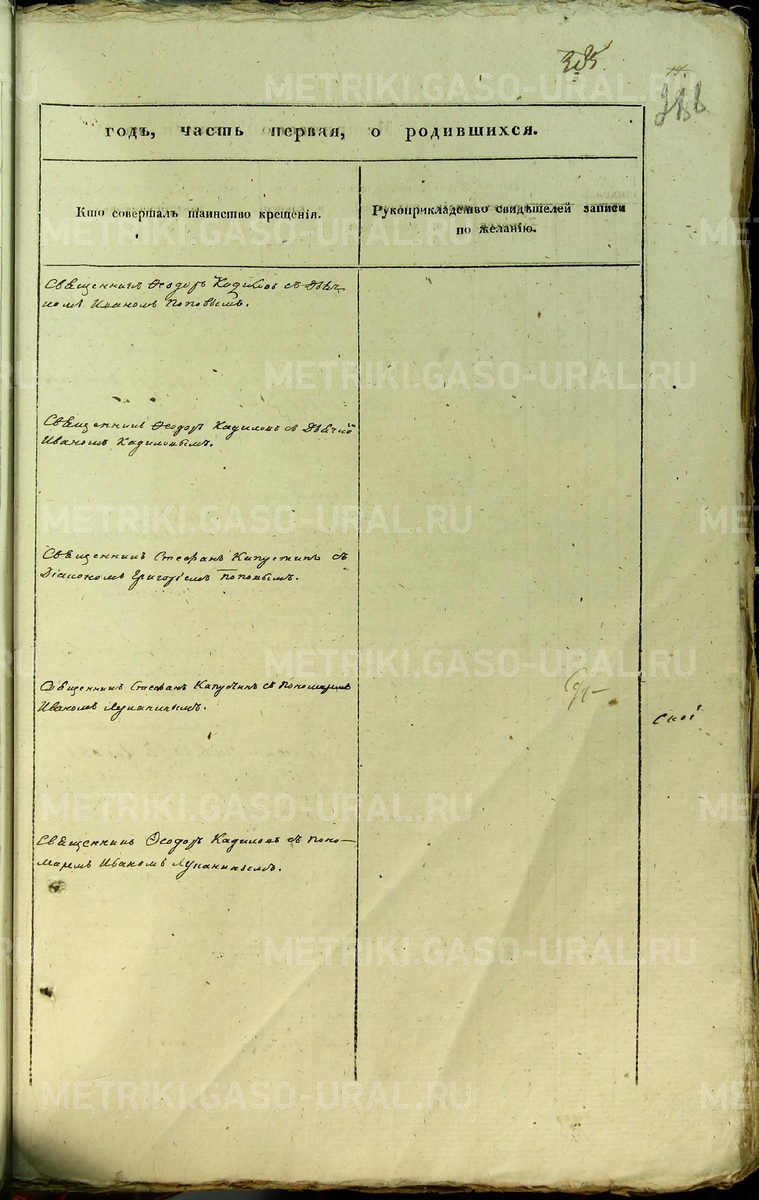 годъ, часть первая, о родившихся.
Кто совершалъ таинство крещенія.
Рукоприкладство свидѣтелей записи
по желанію.
Священникъ Ѳеодоръ Кадиловъ съ Дьяч-
комъ Иваномъ Поповымъ.
Священникъ Ѳеодоръ Кадиловъ съ Дьячко
Иваномъ Кадиловымъ.
Священникъ Стефанъ Капустинъ съ
Діакономъ Григоріемъ Поповымъ.
Священникъ Стефанъ Капустинъ съ Пономаремъ
Иваномъ Лупанинымъ.
Священникъ Ѳеодоръ Кадиловъ съ Поно-
маремъ Иваномъ Лупанинымъ.
METRIKI.GASO-URAL.RU